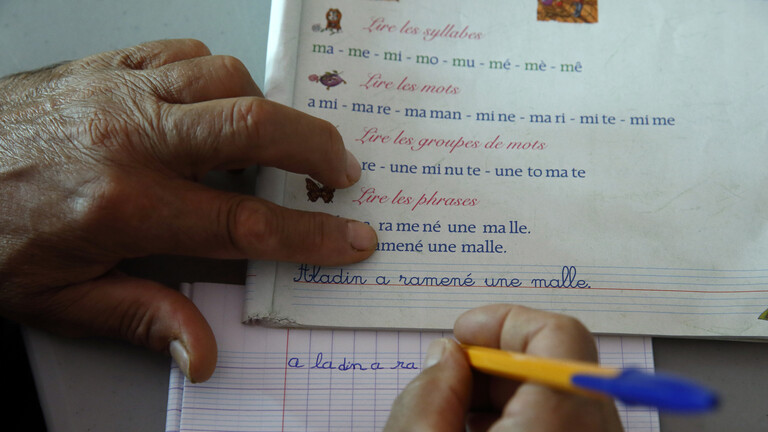 Lire les syllabes
ma - me - mi - mo - mu - mé - mè - mê
Lire les mots
a mi - ma re - ma man - mi ne - ma ri - mi te - mi me
Lire les groupes de mots
re - une mi nu te - une to ma te
Lire les phrases
a ra me né une ma lle.
amené une malle.
Aladin a ramené une malle.
a la din a ra